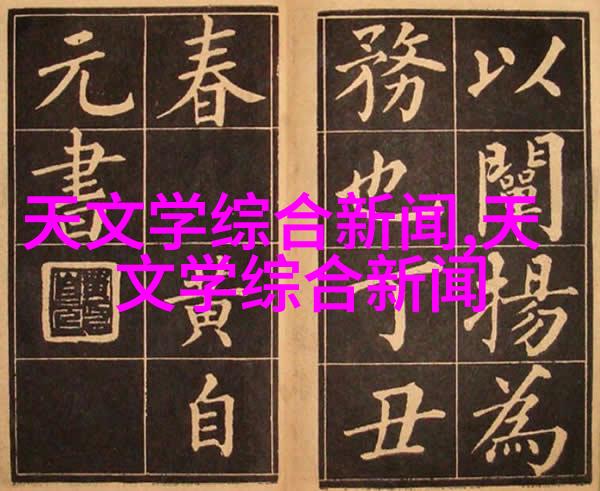 以闡揚為
務也丁丑
春黃自
元書
天文学综合新闻,天
文学综合新闻